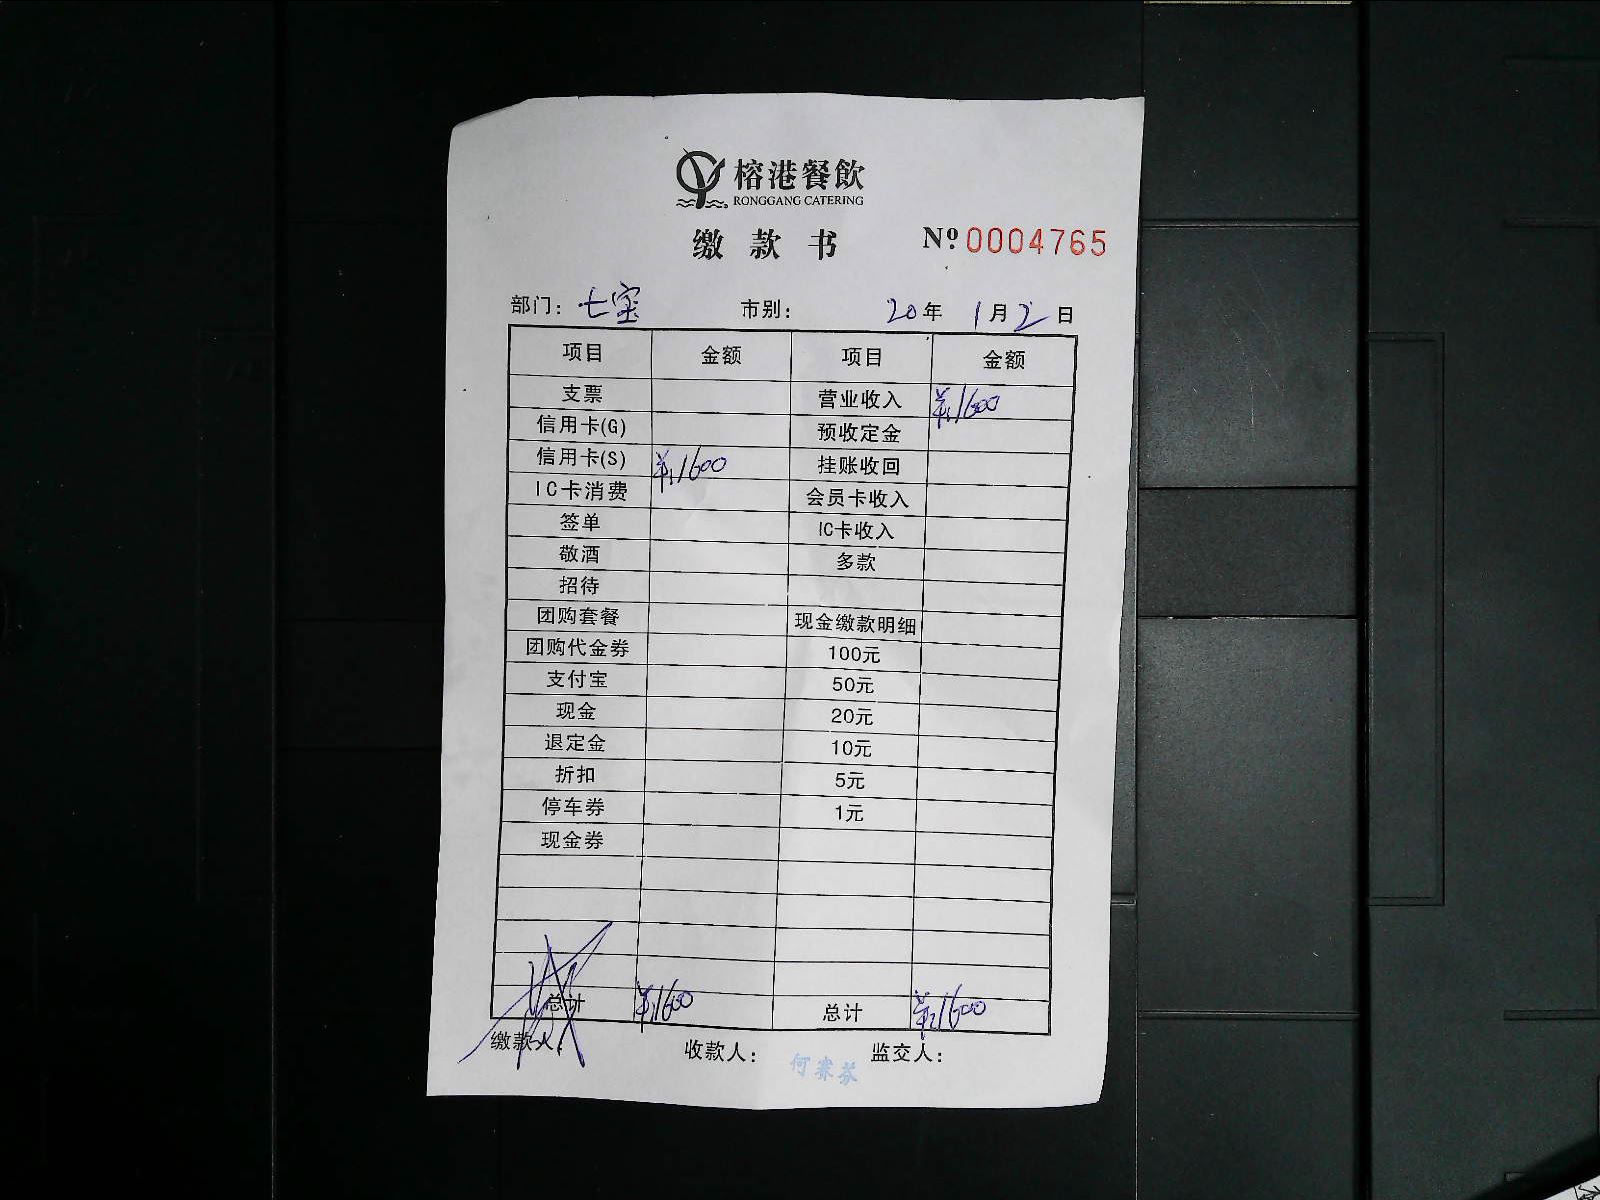 榕港餐飲
RONGGANG CATERING
缴款书 Nº 0004765
部门: 七宝 市别: 20年 1月2日
项目 金额 项目 金额
支票 营业收入 ¥1600
信用卡(G) 预收定金
信用卡(S) ¥1600 挂账收回
IC卡消费 会员卡收入
签单 IC卡收入
敬酒 多款
招待
团购套餐 现金缴款明细
团购代金券 100元
支付宝 50元
现金 20元
退定金 10元
折扣 5元
停车券 1元
现金券
总计 ¥1600 总计 ¥1600
缴款人: 收款人: 监交人: